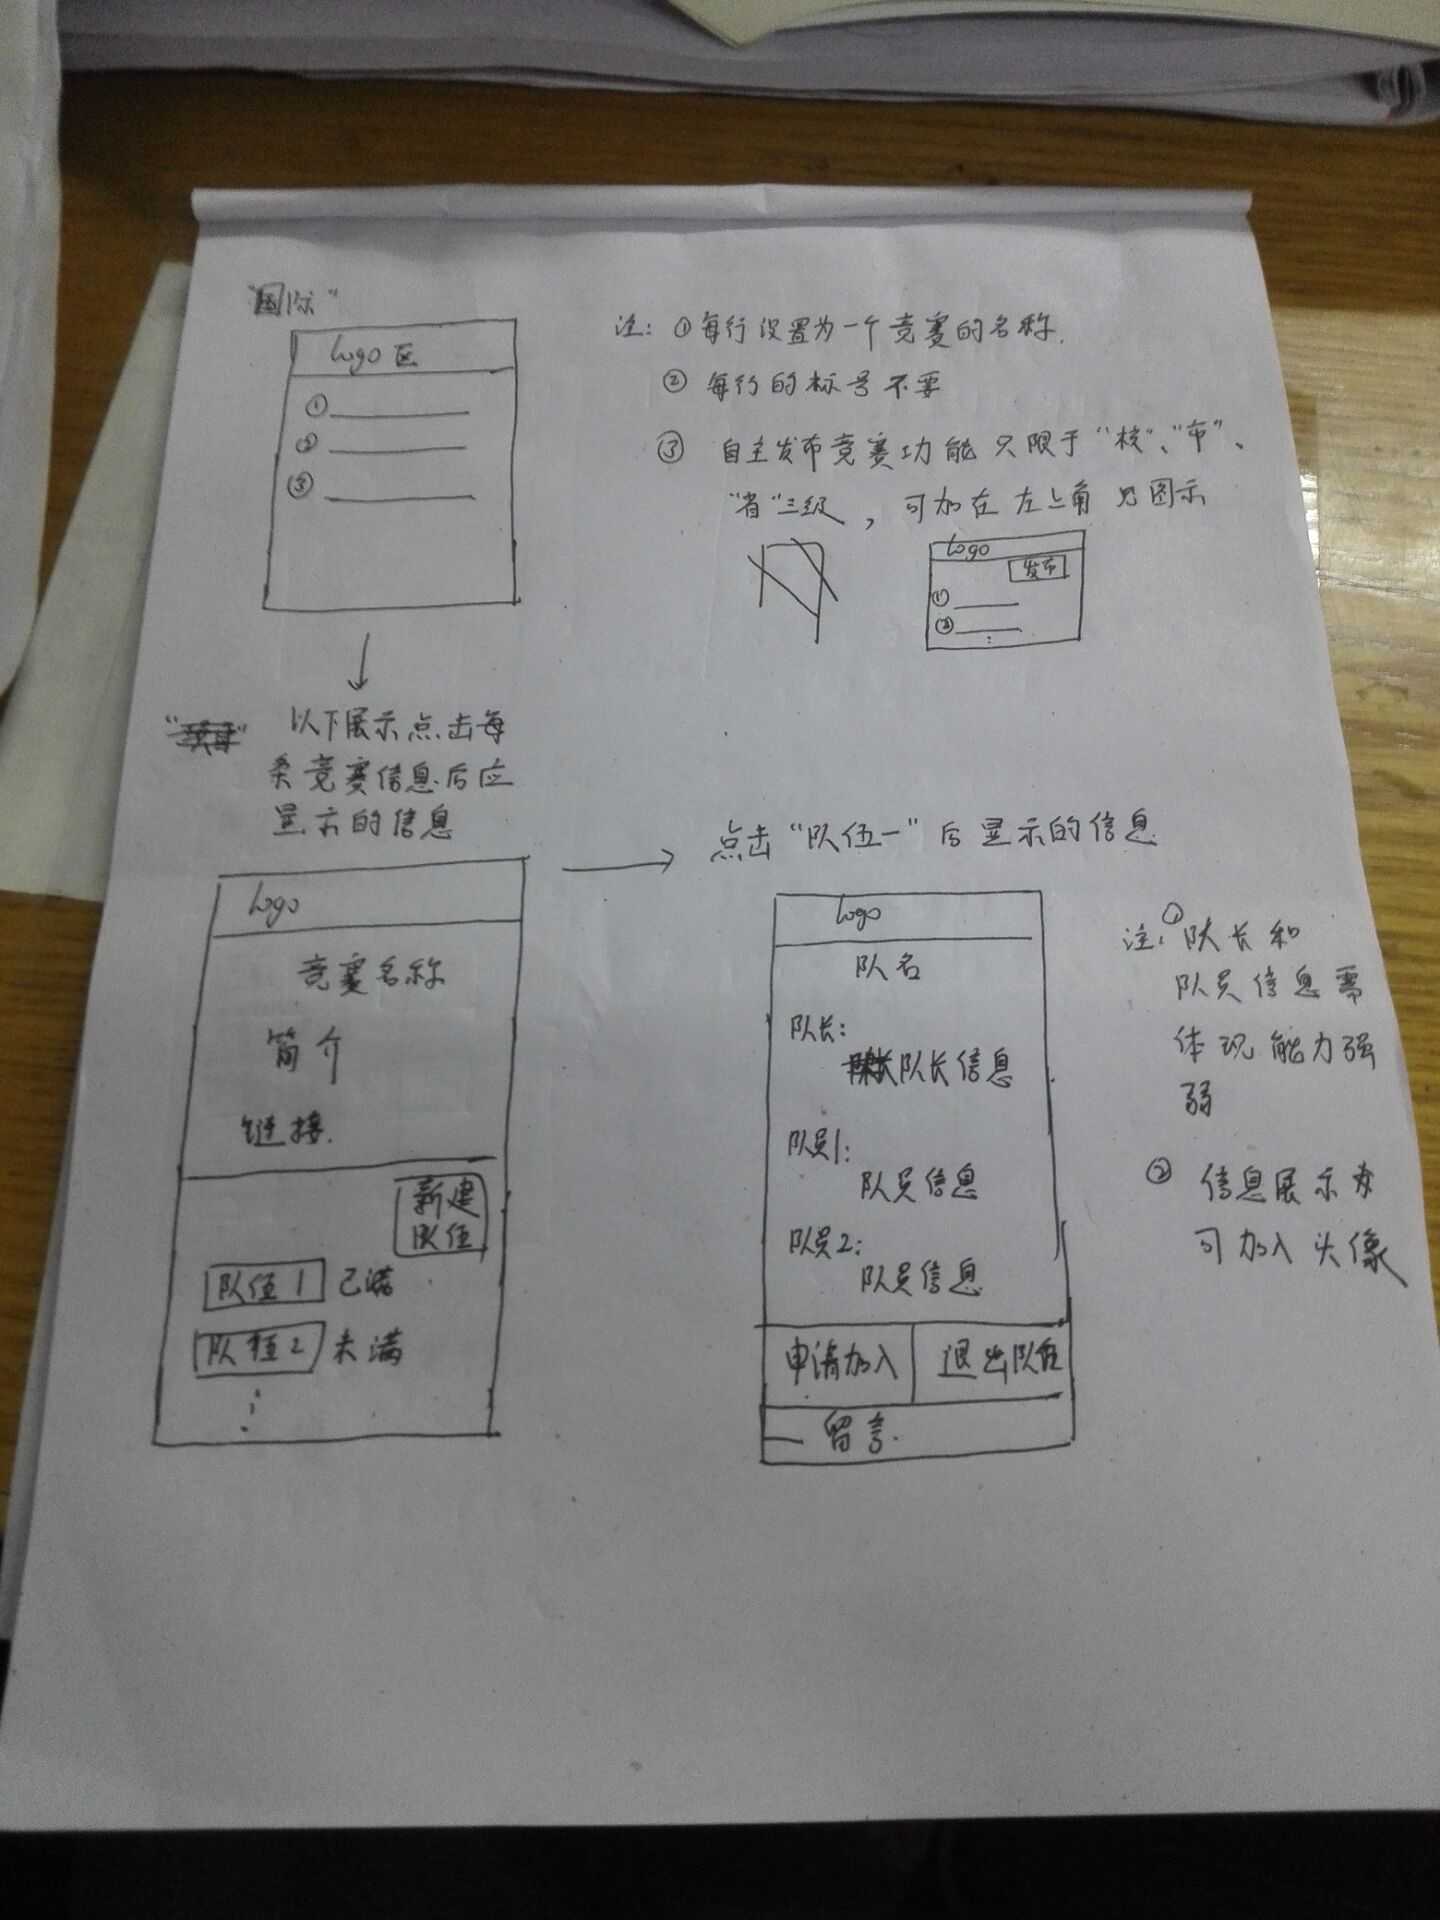 "国际"
logo区
①
②
③
注：①每行设置为一个竞赛的名称.
② 每行的标号不要
③ 自主发布竞赛功能只限于"校"、"市"、
"省"三级，可加在左上角 见图示
logo
发布
①
②
以下展示点击每
条竞赛信息后应
显示的信息
logo
竞赛名称
简介
链接.
新建
队伍
队伍1 已满
队伍2 未满
点击"队伍一"后显示的信息
logo
队名
队长：
队长信息
队员1：
队员信息
队员2：
队员信息
申请加入 退出队伍
留言.
注：①队长和
队员信息需
体现能力强
弱
② 信息展示处
可加入头像